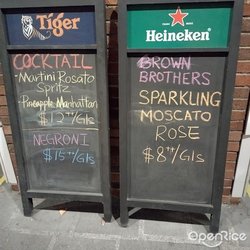 Tiger
COCKTAIL
-Martini Rosato
Spritz
-Pineapple Manhattan
$12++/Gls
NEGRONI
$15++/Gls
Heineken
BROWN
BROTHERS
SPARKLING
MOSCATO
ROSE
$8++/Gls
OpenRice